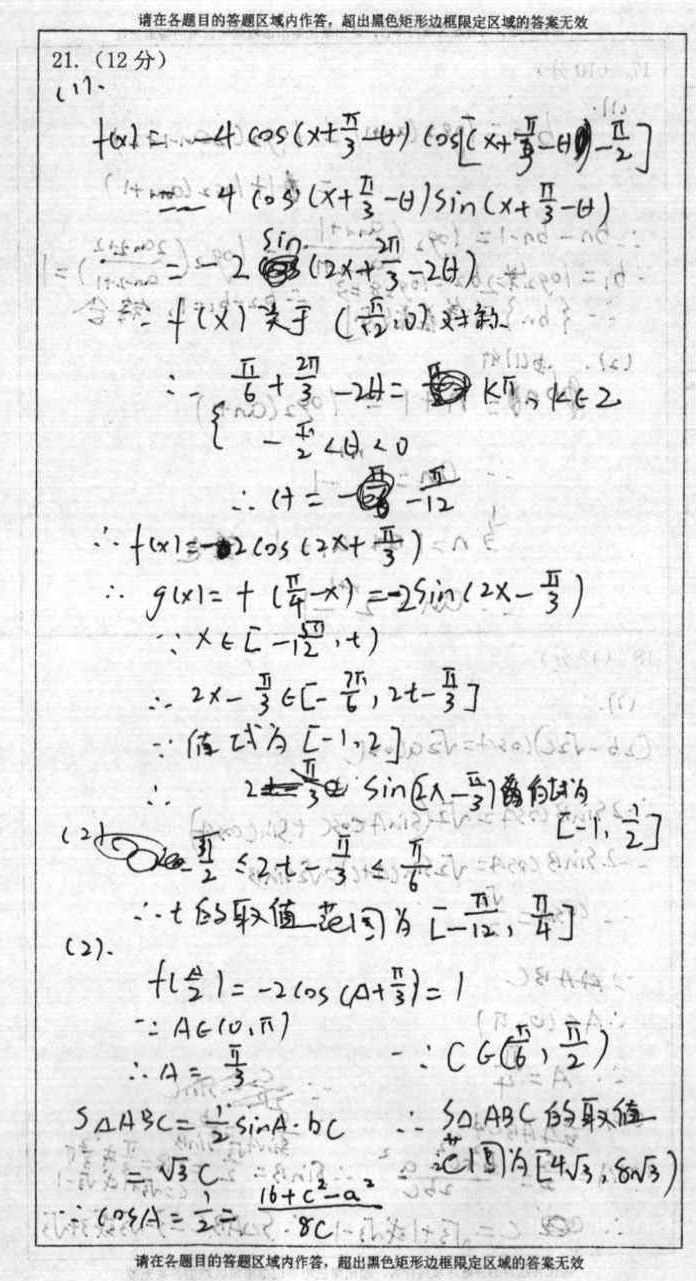 请在各题目的答题区域内作答，超出黑色矩形边框限定区域的答案无效
21.（12分）
(1).
f(x) = -4 cos(x+π/3-θ) cos[(x+π/3-θ)-π/2]
= -4 cos(x+π/3-θ) sin(x+π/3-θ)
= -2 sin(2x+2π/3-2θ)
∵ f(x) 关于 (π/12,0) 对称
∴ { π/6+2π/3-2θ = kπ, k∈Z
-π/2<θ<0
∴ θ = -π/12
∴ f(x) = -2cos(2x+π/3)
∴ g(x) = f(π/4-x) = -2sin(2x-π/3)
∵ x∈[-5π/12, t)
∴ 2x-π/3∈[-7π/6, 2t-π/3]
∵ 值域为 [-1,2]
∴ sin(2x-π/3)的值域为
[-1, 1/2]
(2)
-π/2 ≤ 2t-π/3 ≤ π/6
∴ t的取值范围为 [-π/12, π/4]
(2).
f(A/2) = -2cos(A+π/3) = 1
∵ A∈(0,π)
∴ A = π/3
∵ C∈(π/6, π/2)
S△ABC = 1/2 sinA·bc
= √3 c
∴ S△ABC 的取值
范围为 [4√3, 8√3)
∵ cosA = 1/2 = (16+c²-a²)/8c
请在各题目的答题区域内作答，超出黑色矩形边框限定区域的答案无效